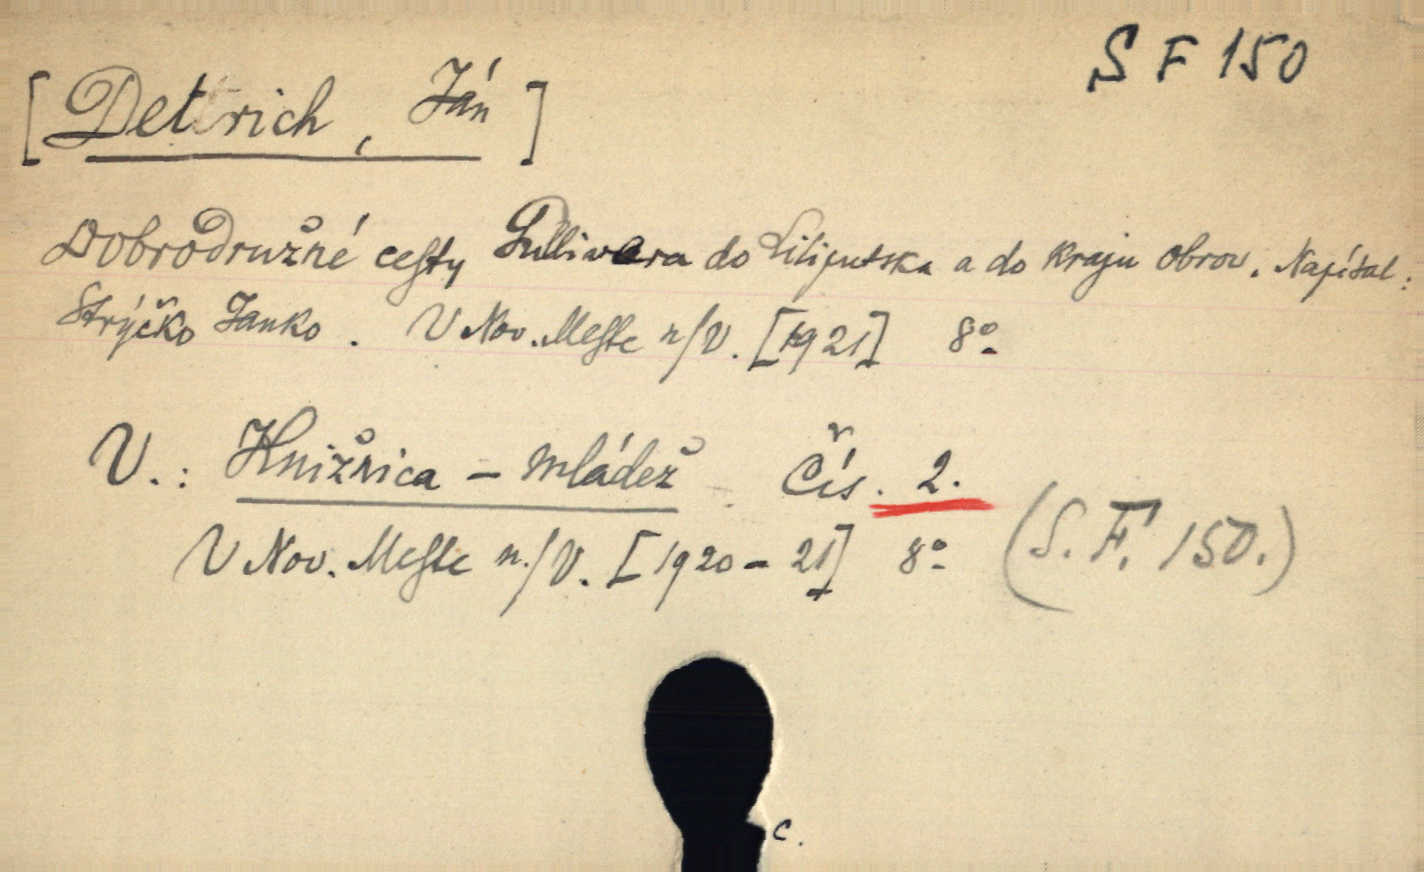 S F 150
[Detrich, Ján]
Dobrodružné cesty Gullivera do Liliputska a do kraju obrov. Napísal:
Strýčko Janko. V Nov. Meste n/V. [1921] 8º
V.: Knižnica - mládež Čís. 2.
V Nov. Meste n./V. [1920-21] 8º (S.F. 150.)
c.